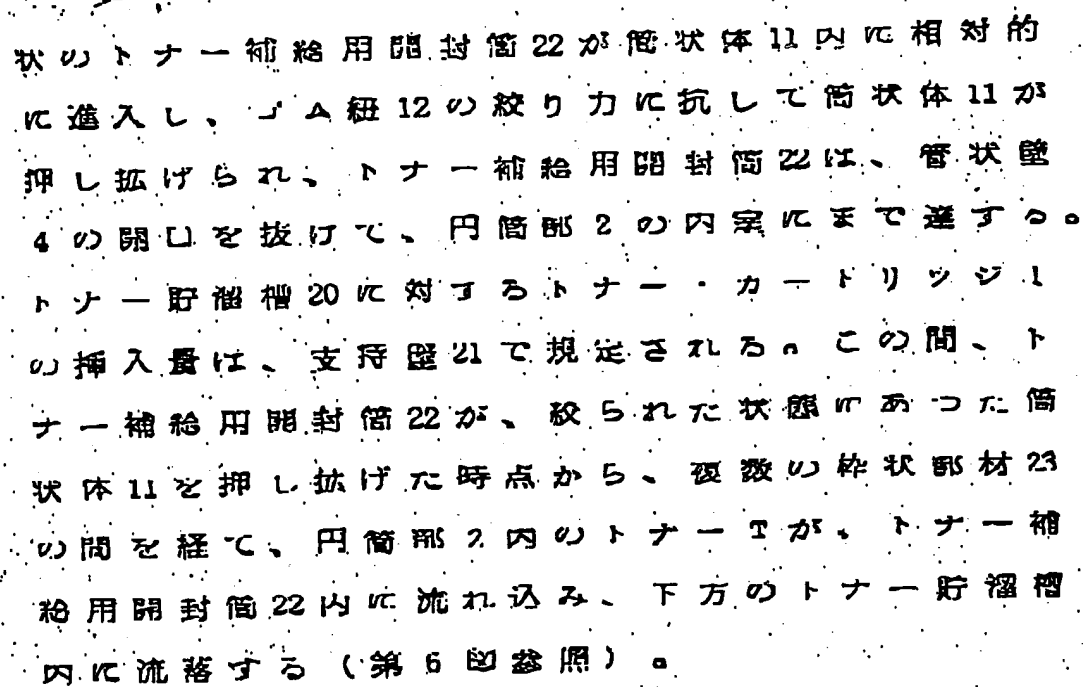 状のトナー補給用開封筒22が筒状体11内に相対的
に進入し、ゴム紐12の絞り力に抗して筒状体11が
押し拡げられ、トナー補給用開封筒22は、管状壁
4の開口を抜けて、円筒部2の内室にまで達する。
トナー貯溜槽20に対するトナー・カートリッジ1
の挿入量は、支持壁21で規定される。この間、ト
ナー補給用開封筒22が、絞られた状態にあつた筒
状体11を押し拡げた時点から、複数の枠状部材23
の間を経て、円筒部2内のトナーTが、トナー補
給用開封筒22内に流れ込み、下方のトナー貯溜槽
内に流落する(第6図参照)。